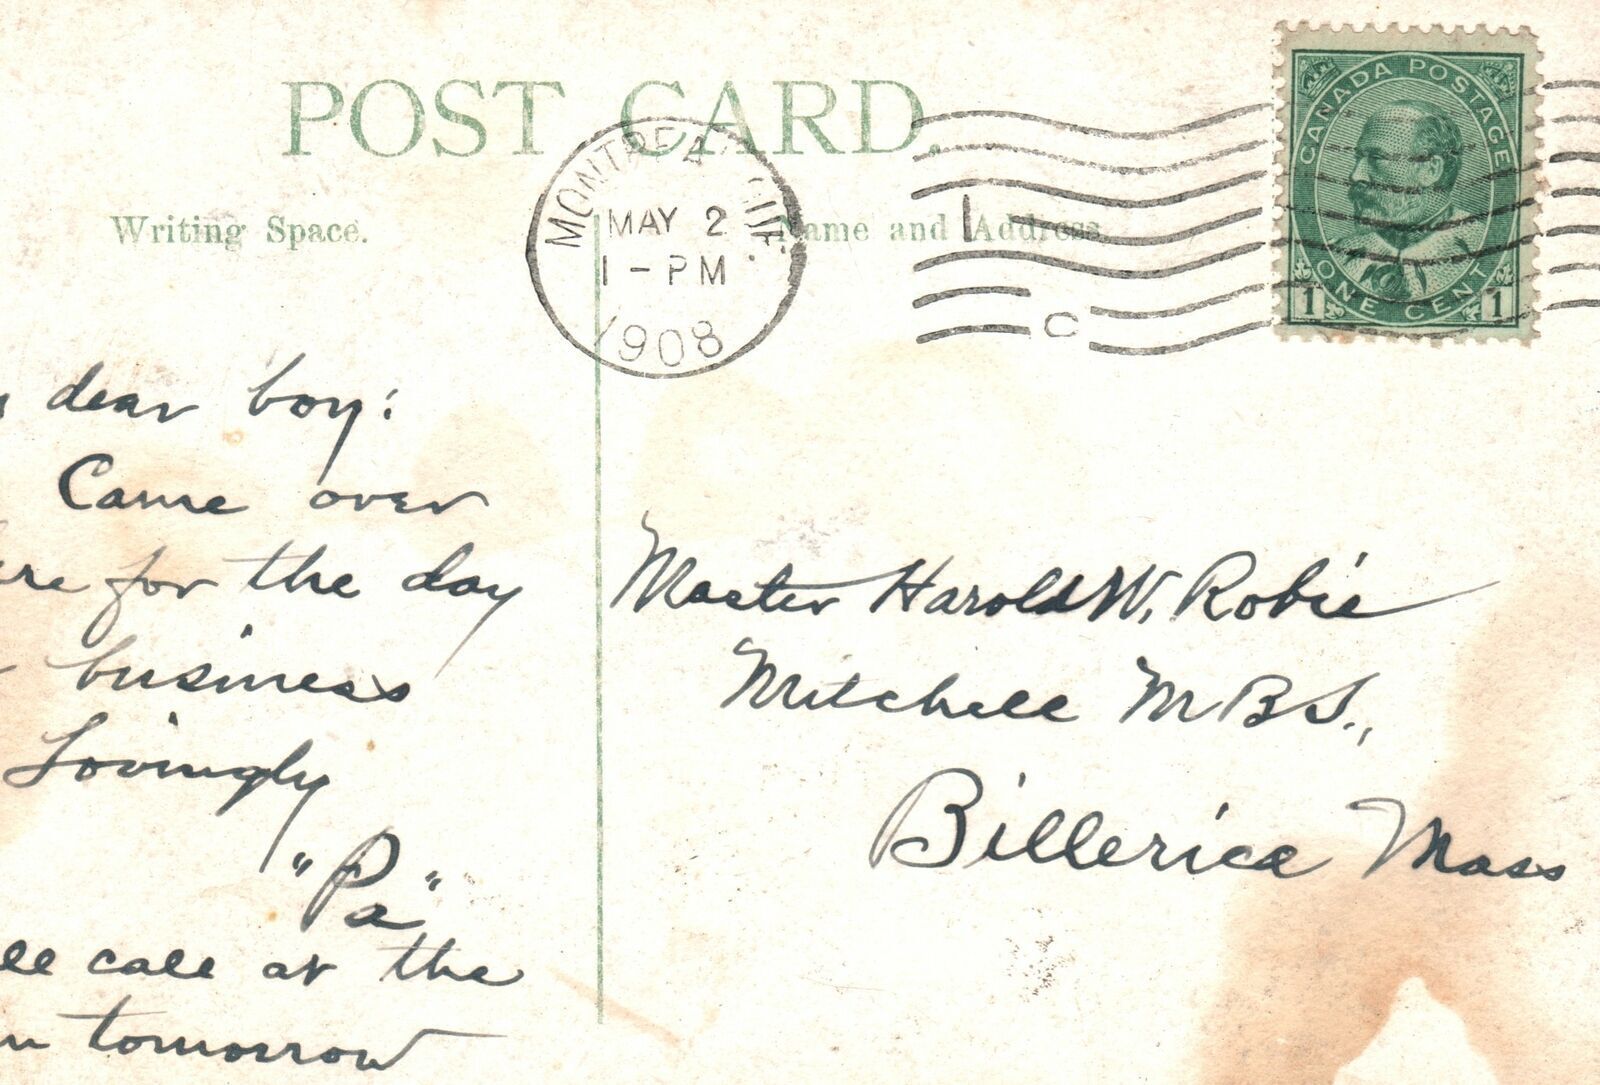 POST CARD.
Writing Space.
Name and Address.
MONTREAL QUE.
MAY 2
1-PM
1908
1
C
CANADA POSTAGE
1 ONE CENT 1
dear boy:
Came over
for the day
business
Lovingly
"Pa"
call at the
tomorrow
Master Harold W. Robie
Mitchell M B S.,
Billerica Mass